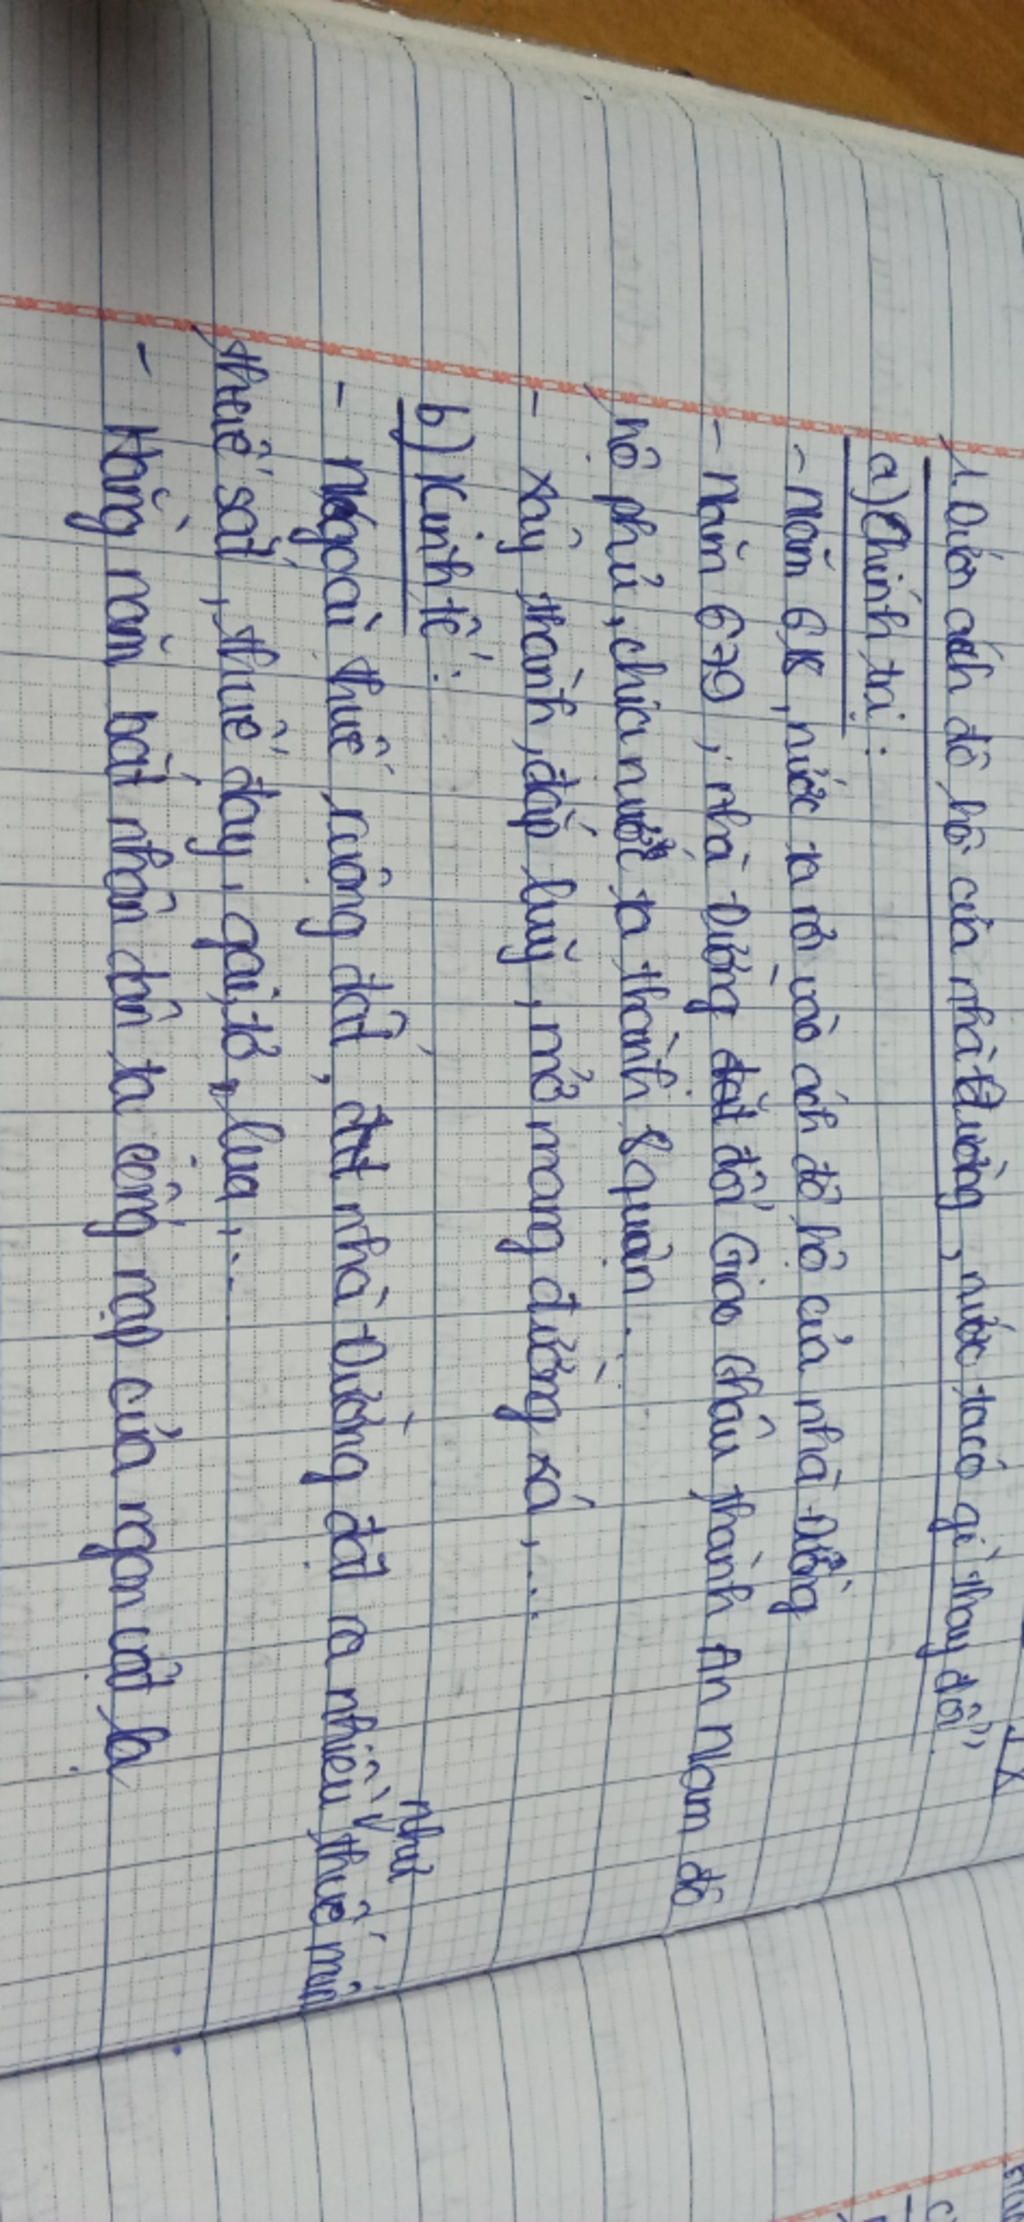 1. Dưới ách đô hộ của nhà Đường, nước ta có gì thay đổi?
a) Chính trị:
- Năm 618, nước ta rơi vào ách đô hộ của nhà Đường
- Năm 679, nhà Đường đổi Giao Châu thành An Nam đô
hộ phủ, chia nước ta thành 8 quận.
- Xây thành, đắp luỹ, mở mang đường xá,...
b) Kinh tế:
như
- Ngoài thuế ruộng đất, nhà Đường đặt ra nhiều thuế mới
thuế sắt, thuế đay, gai, tơ, lụa,...
- Hằng năm bắt nhân dân ta cống nạp của ngon vật lạ